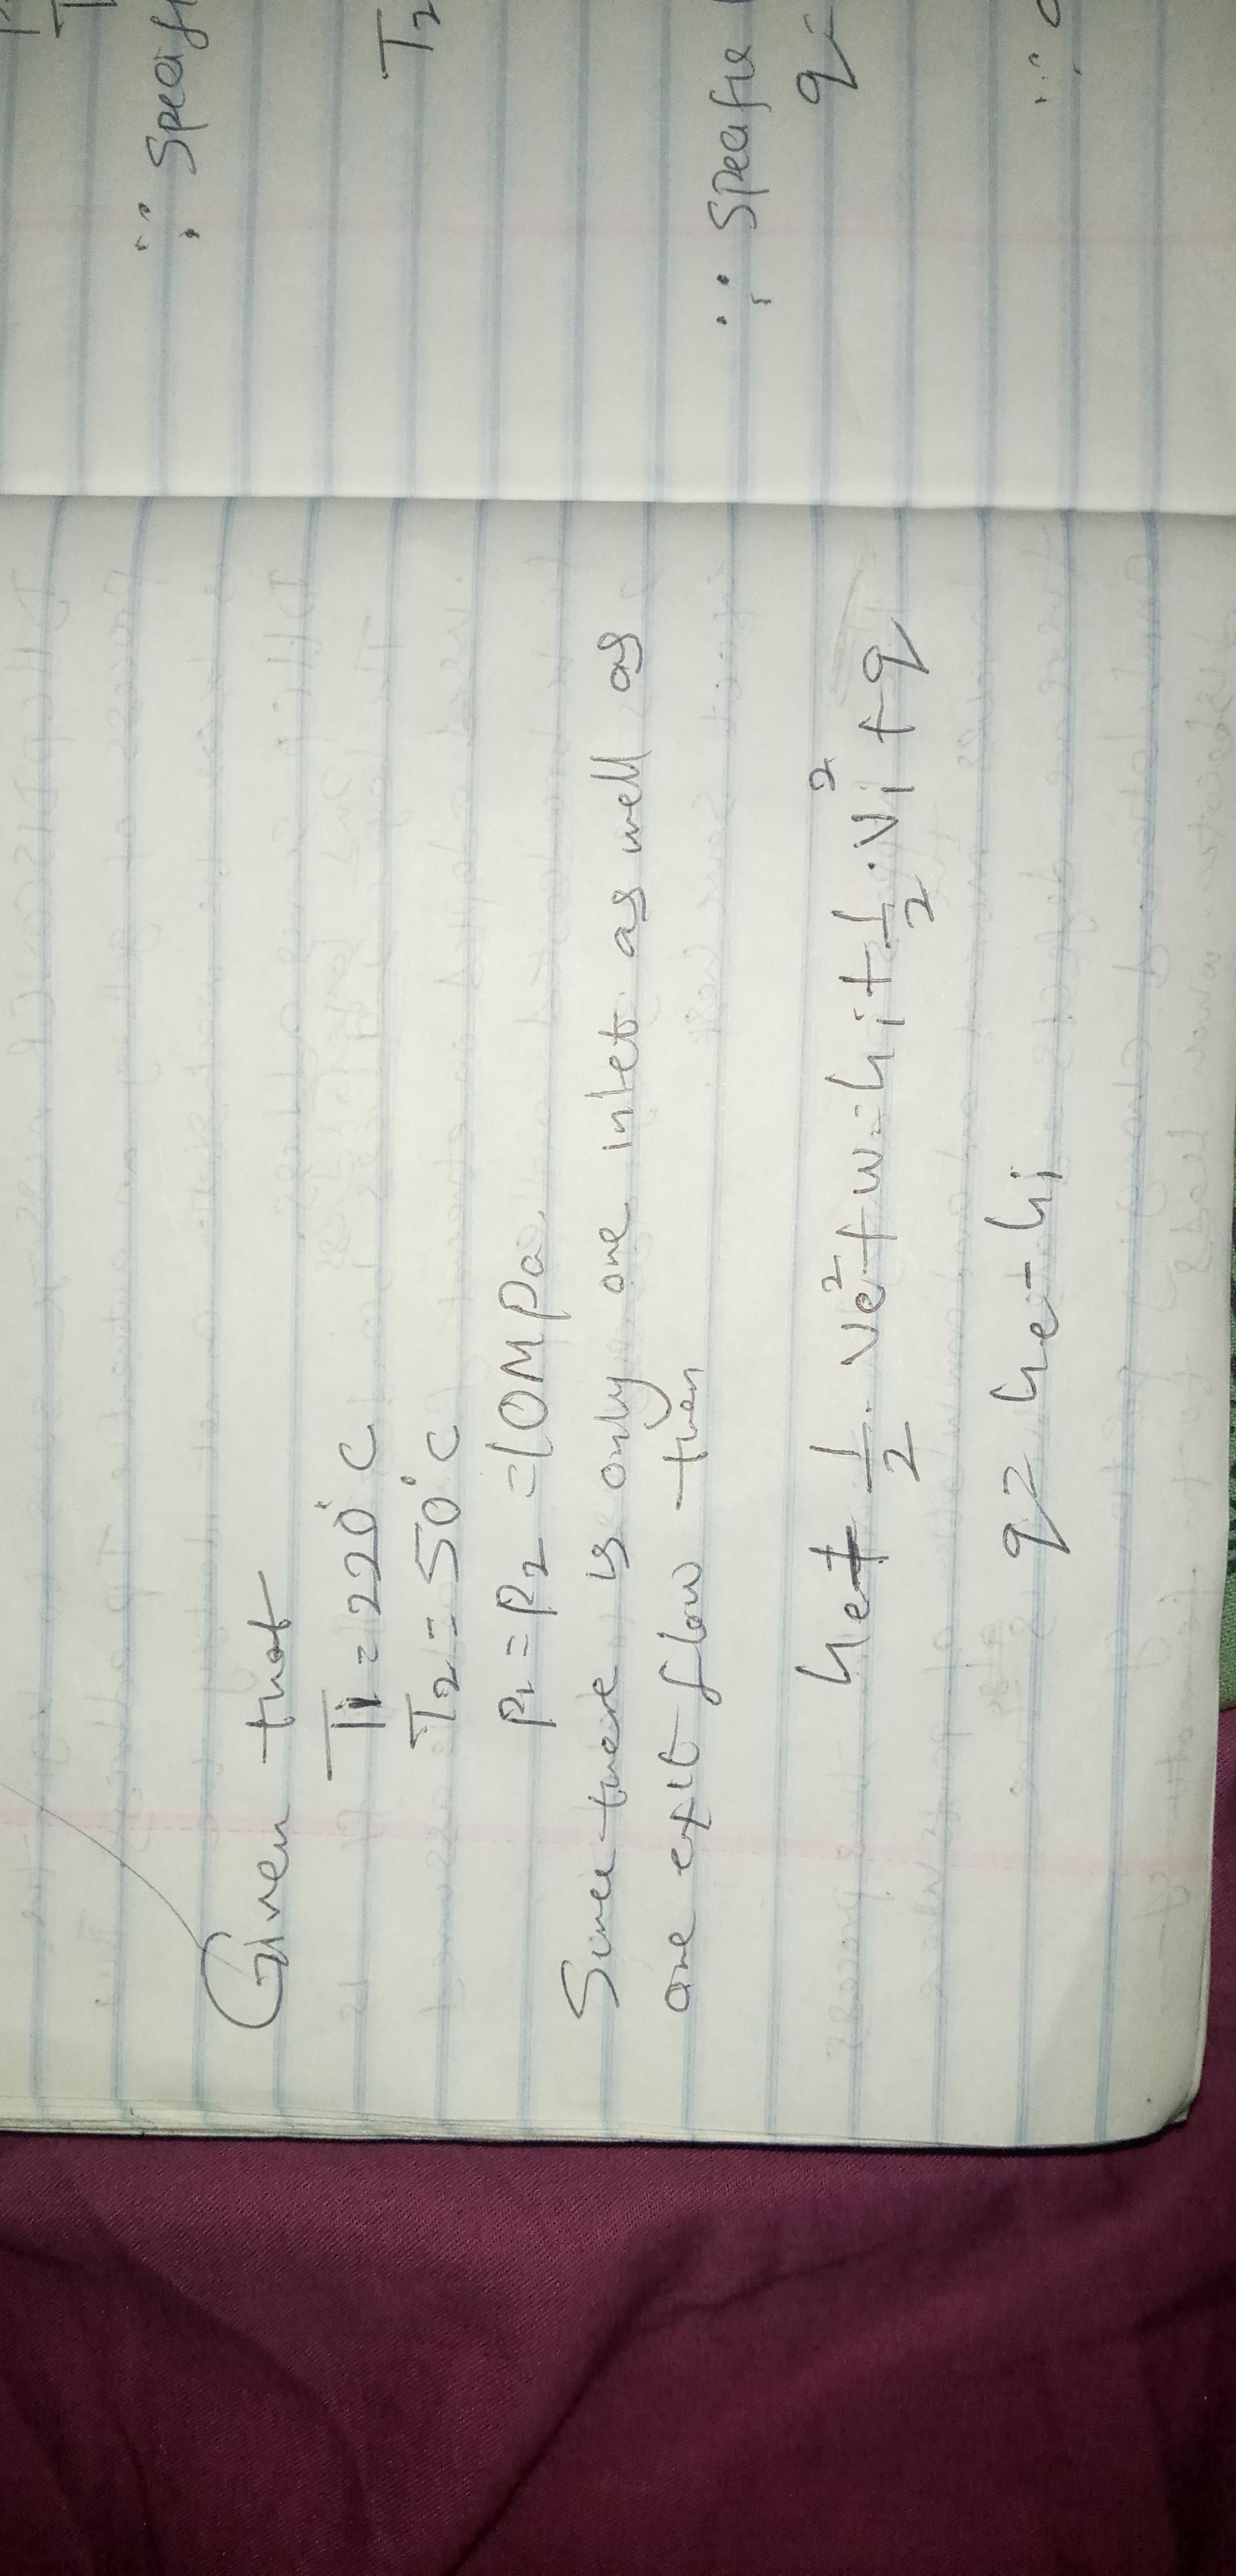 Given that
T1 = 220°C
T2 = 50°C
P1 = P2 = 10MPa.
Since there is only one inlet as well as
one exit flow then
he + 1/2 . Ve² + w = hi + 1/2 . Vi² + q
q = he - hi
∴ Specif
T2
∴ Specific
q =
∴